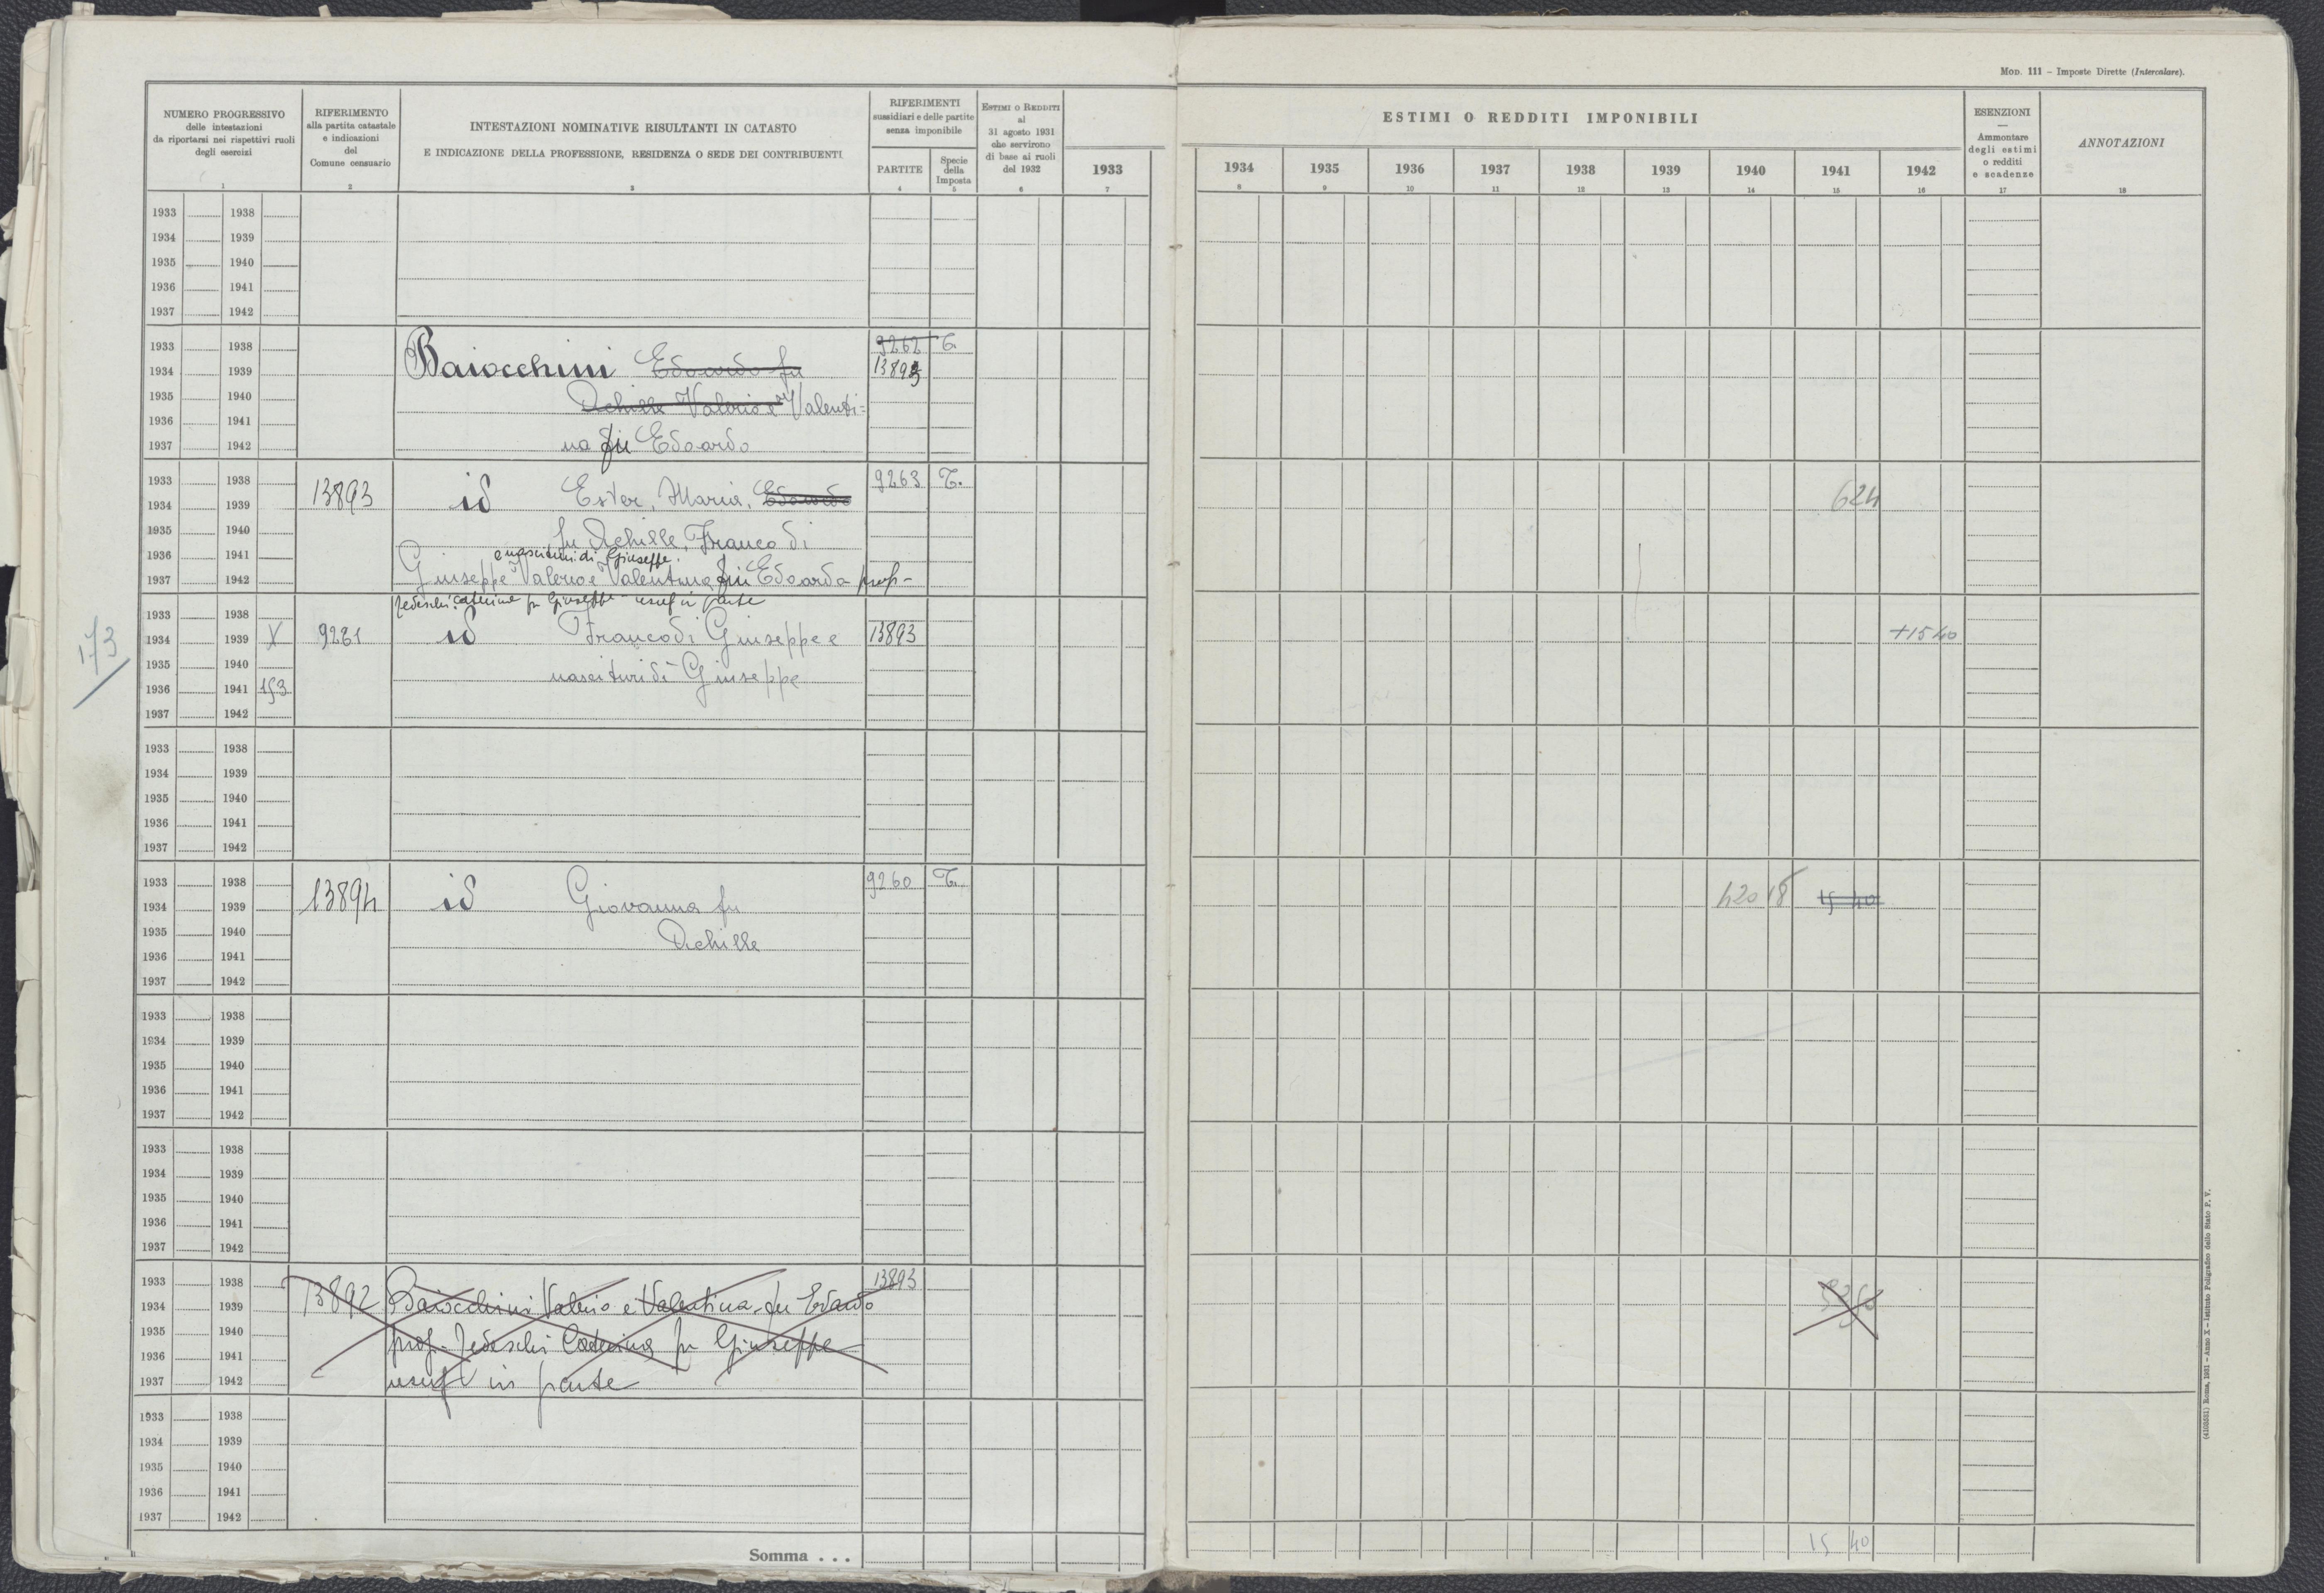 MOD. 111 – Imposte Dirette (Intercalare).
NUMERO PROGRESSIVO
delle intestazioni
da riportarsi nei rispettivi ruoli
degli esercizi
1
RIFERIMENTO
alla partita catastale
e indicazioni
del
Comune censuario
2
INTESTAZIONI NOMINATIVE RISULTANTI IN CATASTO
E INDICAZIONE DELLA PROFESSIONE, RESIDENZA O SEDE DEI CONTRIBUENTI
3
RIFERIMENTI
sussidiari e delle partite
senza imponibile
PARTITE
4
Specie
della
Imposta
5
ESTIMI O REDDITI
al
31 agosto 1931
che servirono
di base ai ruoli
del 1932
6
1933
7
ESTIMI O REDDITI IMPONIBILI
1934 1935 1936 1937 1938 1939 1940 1941 1942
8 9 10 11 12 13 14 15 16
ESENZIONI
—
Ammontare
degli estimi
o redditi
e scadenze
17
ANNOTAZIONI
18
1933 1938
1934 1939
1935 1940
1936 1941
1937 1942
1933 1938 9262 T.
1934 1939 Baiocchini Edoardo fu 13893
1935 1940 Achille Valerio e Valenti=
1936 1941
1937 1942 na fu Edoardo
1933 1938 9263 T.
1934 1939 13893 id Ester, Maria, Edoardo 624
1935 1940 fu Achille, Franco di
1936 1941 e nascituri di Giuseppe.
1937 1942 Giuseppe Valerio e Valentina fu Edoardo prop-
Tedeschi Caterina fu Giuseppe usuf in parte
1933 1938
173
1934 1939 X 9261 id Franco di Giuseppe e 13893 +15 40
1935 1940
1936 1941 153 nascituri di Giuseppe
1937 1942
1933 1938
1934 1939
1935 1940
1936 1941
1937 1942
1933 1938 9260 T.
1934 1939 13894 id Giovanna fu 420 18 15 40
1935 1940 Achille
1936 1941
1937 1942
1933 1938
1934 1939
1935 1940
1936 1941
1937 1942
1933 1938
1934 1939
1935 1940
1936 1941
1937 1942
1933 1938 13893
1934 1939 13892 Baiocchini Valerio e Valentina fu Edoardo
1935 1940 prop- Tedeschi Caterina fu Giuseppe
1936 1941
1937 1942 usuf in parte
1933 1938
1934 1939
1935 1940
1936 1941
1937 1942
Somma . . . 15 40
(4103531) Roma, 1931 – Anno X – Istituto Poligrafico dello Stato P. V.